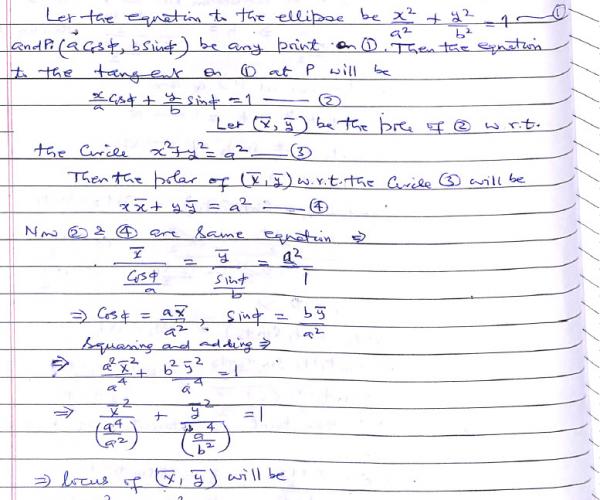 Let the equation to the ellipse be x²/a² + y²/b² = 1 — ①
and P(a cosϕ, b sinϕ) be any point on ①. Then the equation
to the tangent on ① at P will be
x/a cosϕ + y/b sinϕ = 1 — ②
Let (x̄, ȳ) be the pole of ② w.r.t.
the Circle x²+y² = a² — ③
Then the polar of (x̄, ȳ) w.r.t. the Circle ③ will be
x x̄ + y ȳ = a² — ④
Now ② & ④ are same equation ⇒
x̄/(cosϕ/a) = ȳ/(sinϕ/b) = a²/1
⇒ cosϕ = a x̄/a², sinϕ = b ȳ/a²
Squaring and adding ⇒
⇒ a² x̄²/a⁴ + b² ȳ²/a⁴ = 1
⇒ x̄²/(a⁴/a²) + ȳ²/(a⁴/b²) = 1
⇒ locus of (x̄, ȳ) will be